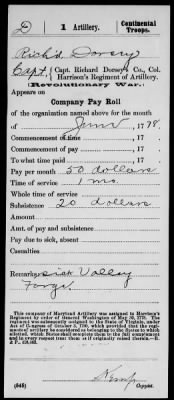 D | 1 Artillery. | Continental Troops.
Rich'd Dorsey
Capt, { Capt. Richard Dorsey's Co., Col. Harrison's Regiment of Artillery.
(Revolutionary War.)
Appears on
Company Pay Roll
of the organization named above for the month
of June, 1778.
Commencement of time, 17
Commencement of pay, 17
To what time paid, 17
Pay per month 50 dollars
Time of service 1 mo.
Whole time of service
Subsistence 20 dollars
Amount
Amt. of pay and subsistence
Pay due to sick, absent
Casualties
Remarks: sick Valley
Forge.
This company of Maryland Artillery was assigned to Harrison's
Regiment by order of General Washington of May 30, 1778. The
regiment was subsequently assigned to the State of Virginia, under
Act of Congress of October 3, 1780, which provided that the regiments
of artillery be considered as belonging to the States to which
allotted, which States shall complete them to the full complement
and in every respect treat them as if originally raised therein.—R.
& P.
(545) Copyist.